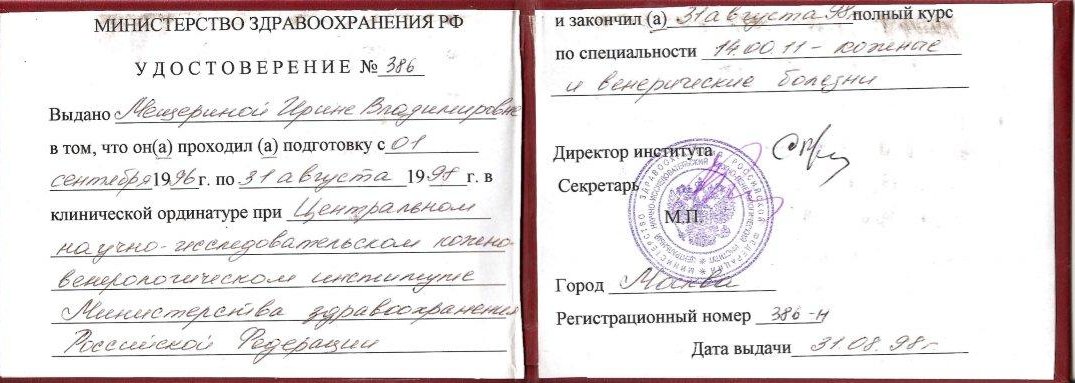 МИНИСТЕРСТВО ЗДРАВООХРАНЕНИЯ РФ
УДОСТОВЕРЕНИЕ № 386
Выдано Мещериной Ирине Владимировне
в том, что он(а) проходил (а) подготовку с 01
сентября 1996 г. по 31 августа 1998 г. в
клинической ординатуре при Центральном
научно-исследовательском кожно-
венерологическом институте
Министерства здравоохранения
Российской Федерации
и закончил (а) 31 августа 98г. полный курс
по специальности 14.00.11 - кожные
и венерические болезни
Директор института
Секретарь
М.П.
Город Москва
Регистрационный номер 386-н
Дата выдачи 31.08.98г.